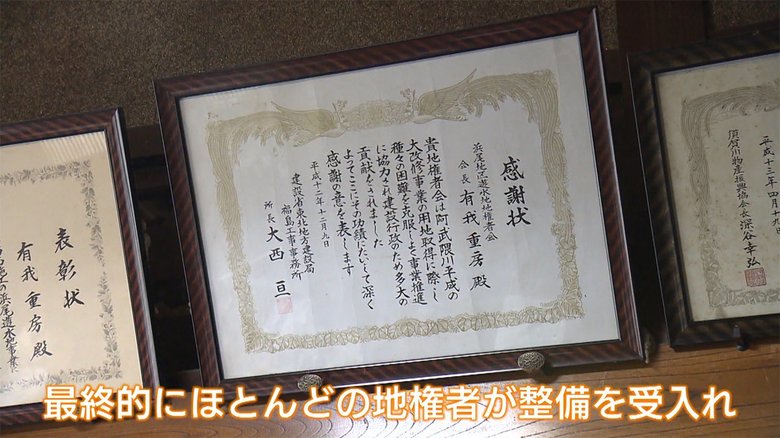 感謝状
浜尾地区遊水地地権者会
会長 有我重房 殿
貴地権者会は阿武隈川平成の
大改修事業の用地取得に際し
種々の困難を克服しよく事業推進
に協力され建設行政のため多大の
貢献をされました
よってここにその功績にたいして深く
感謝の意を表します
平成十二年十二月九日
建設省東北地方建設局
福島工事事務所
所長 大西 亘
表彰状
有我重房殿
平成十三年四月
須賀川物産振興協会長 深谷幸弘
最終的にほとんどの地権者が整備を受入れ